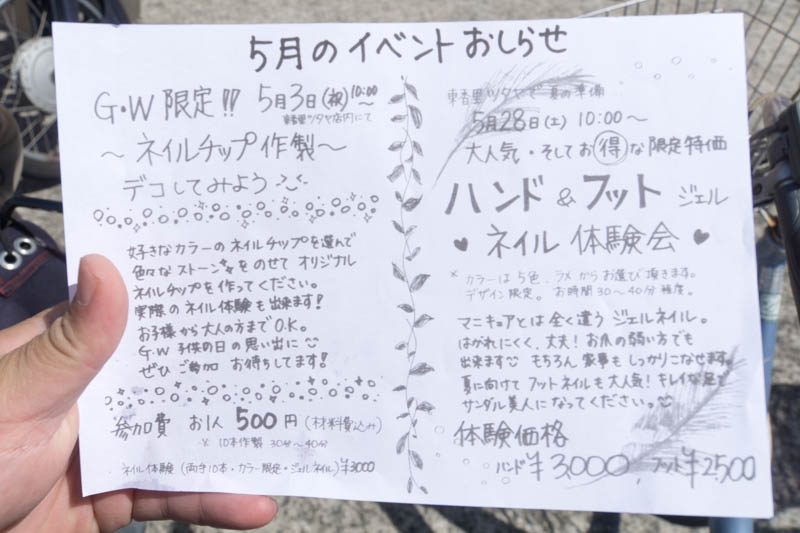 5月のイベントおしらせ
G・W 限定!!! 5月3日(祝)10:00〜
東香里ツタヤ店内にて
〜ネイルチップ作製〜
デコしてみよう
好きなカラーのネイルチップを選んで
色々なストーンをのせてオリジナル
ネイルチップを作ってください。
実際のネイル体験も出来ます!
お子様から大人の方までO.K.
G.W 子供の日の思い出に
ぜひ ご参加 お待ちしてます!
参加費 お1人 500円(材料費込み)
※ 10本作製 30分〜40分
ネイル体験(両手10本・カラー限定・ジェルネイル)¥3000
東香里ツタヤで 夏の準備…
5月28日(土) 10:00〜
大人気・そしてお得な限定特価
ハンド & フット ジェル
♥ ネイル 体験会 ♥
* カラーは5色、ラメからお選び頂きます。
デザイン限定。 お時間30〜40分程度。
マニキュアとは全く違う ジェルネイル。
はがれにくく、丈夫! お爪の弱い方でも
出来ます もちろん 家事もしっかりこなせます。
夏に向けて フットネイルも大人気! キレイな足で
サンダル美人になってください。
体験価格
ハンド ¥3,000、フット ¥2500
CC